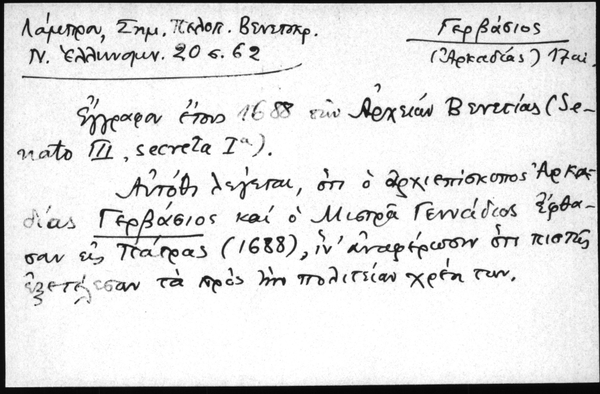 Λάμπρου, Σημ. Πελοπ. Βενετοκρ.
Ν. Ἑλληνομν. 20 σ. 62
Γερβάσιος
(Ἀρκαδίας) 17 αἰ.
Ἔγγραφον ἔτους 1688 τῶν Ἀρχείων Βενετίας (Se-
nato III, secreta Iª).
Αὐτόθι λέγεται, ὅτι ὁ ἀρχιεπίσκοπος Ἀρκα-
δίας Γερβάσιος καὶ ὁ Μιστρᾶ Γεννάδιος ἔφθα-
σαν εἰς Πάτρας (1688), ἵν' ἀναφέρωσιν ὅτι πιστῶς
ἐξετέλεσαν τὰ πρὸς τὴν πολιτείαν χρέη των.